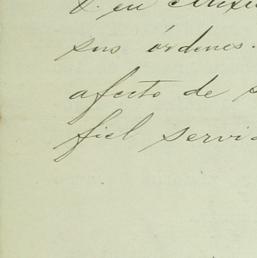 V. en
sus órdenes.
afecto de s
fiel servi